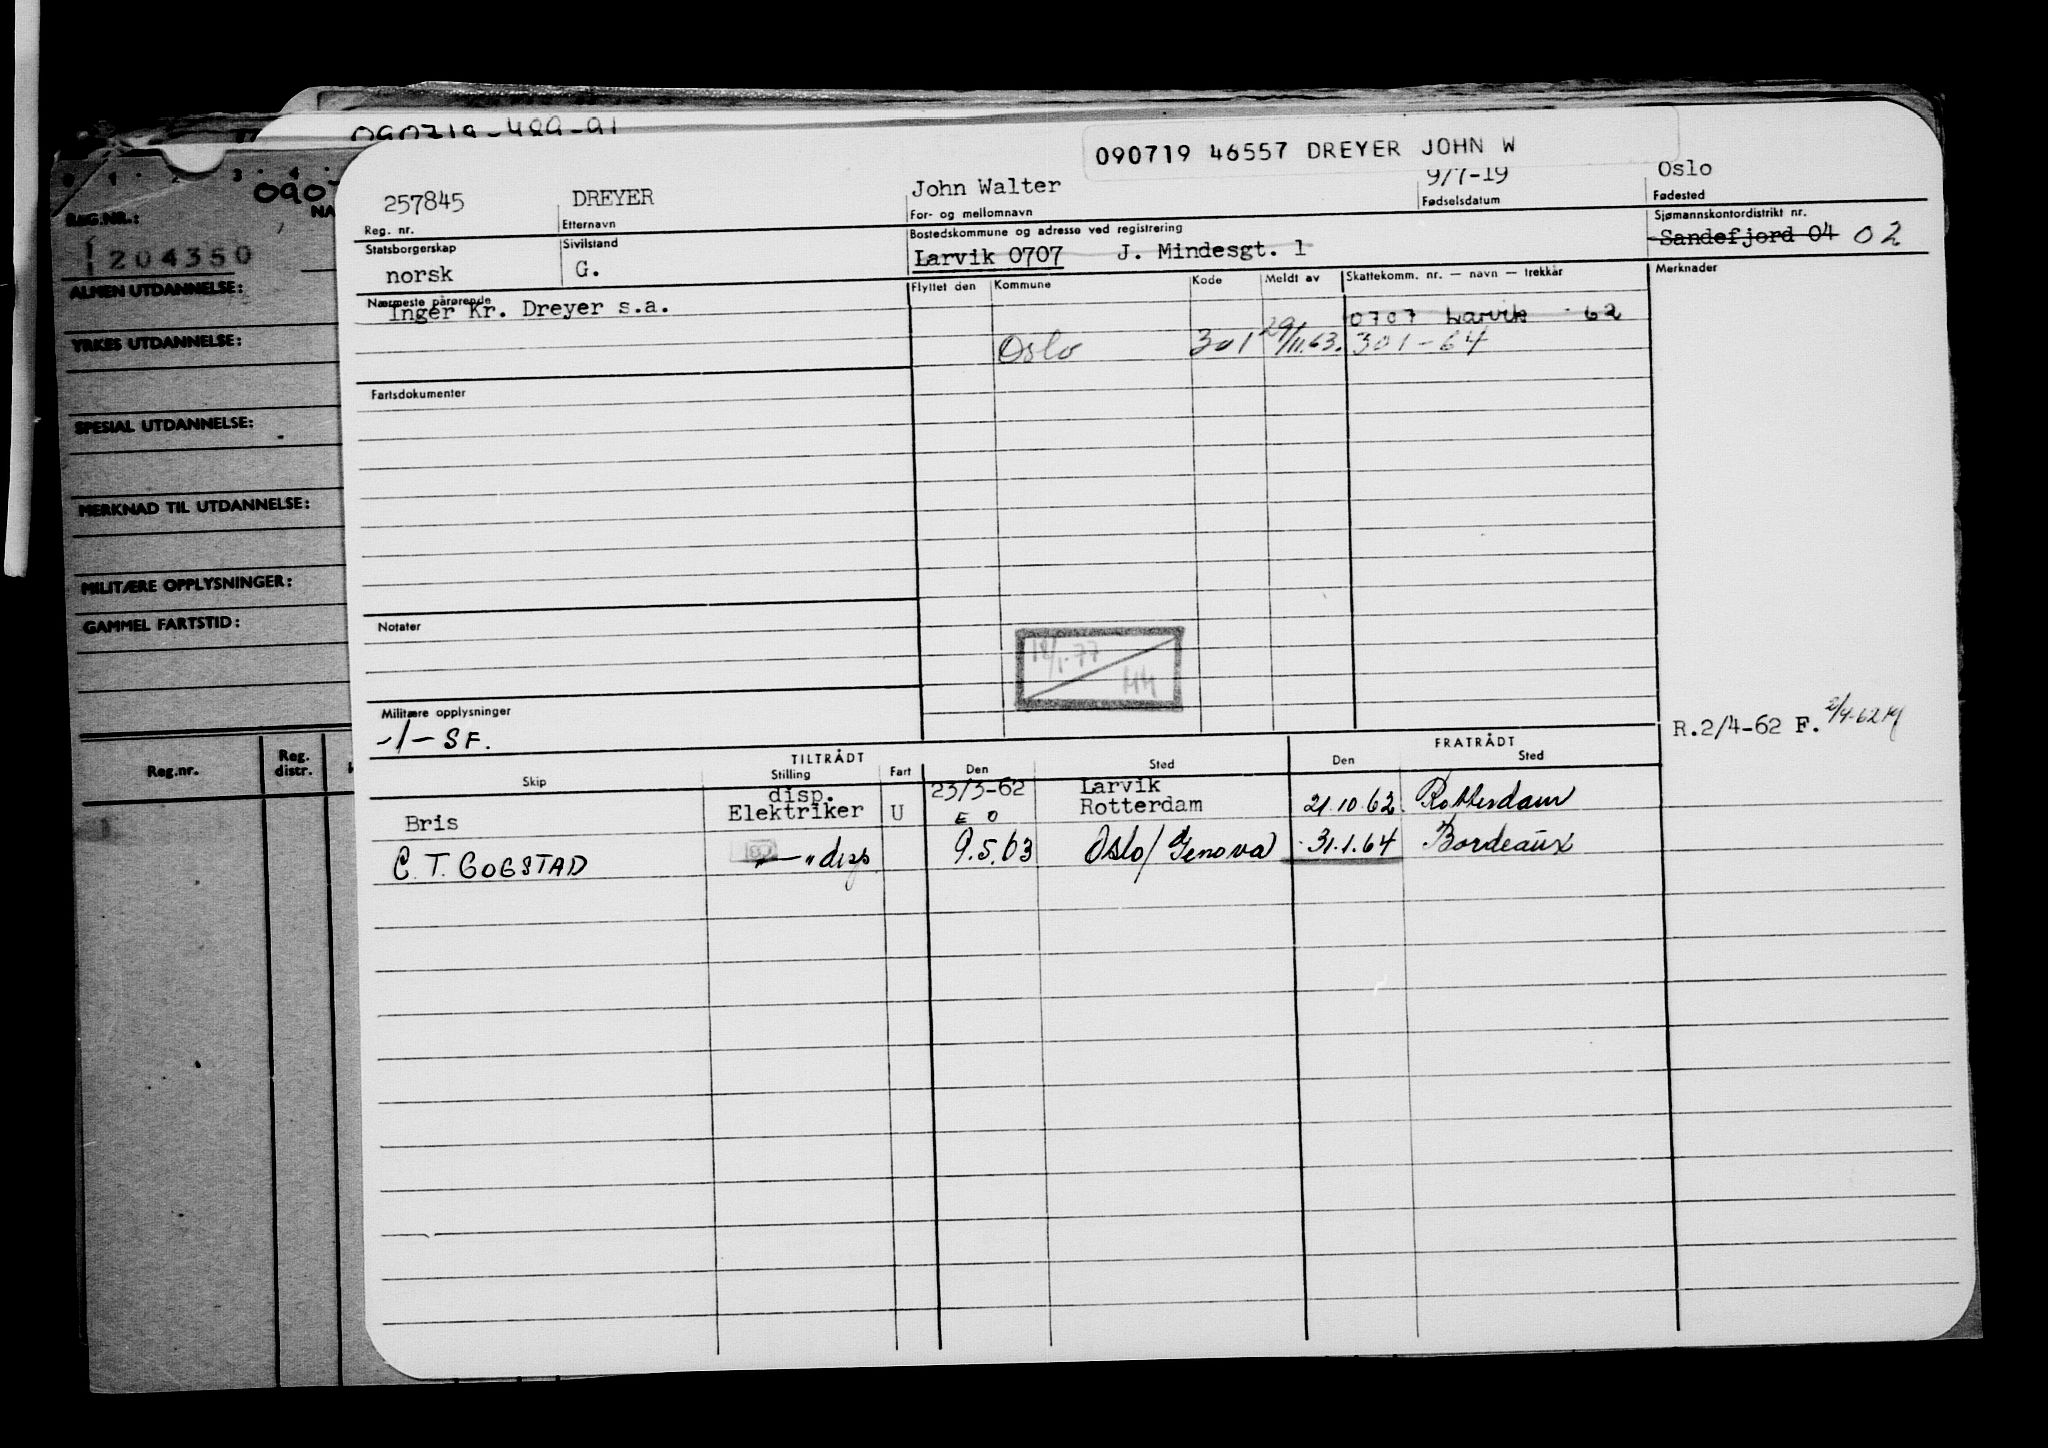 090719 46557 DREYER JOHN W
257845 DREYER John Walter 9/7-19 Oslo
Reg. nr. Etternavn For- og mellomnavn Fødselsdatum Fødested
Statsborgerskap Sivilstand Bostedskommune og adresse ved registrering Sjømannskontordistrikt nr.
norsk G. Larvik 0707 J. Mindesgt. 1 Sandefjord 04 02
Nærmeste pårørende Flyttet den Kommune Kode Meldt av Skattekomm. nr. — navn — trekkår Merknader
Inger Kr. Dreyer s.a. 0707 Larvik 62
Oslo 301 29/11.63. 301-64
Fartsdokumenter
Notater
18/1-77
HH
Militære opplysninger
-1- SF.
R.2/4-62 F.
TILTRÅDT FRATRÅDT
Skip Stilling Fart Den Sted Den Sted
disp. 23/3-62 Larvik
Bris Elektriker U E O Rotterdam 21.10.62 Rotterdam
C. T. GOGSTAD —"— disp 9.5.63 Oslo/Genova 31.1.64 Bordeaux
REG.NR.:
204350
ALMEN UTDANNELSE:
YRKES UTDANNELSE:
SPESIAL UTDANNELSE:
MERKNAD TIL UTDANNELSE:
MILITÆRE OPPLYSNINGER:
GAMMEL FARTSTID:
Reg.nr. Reg. distr.